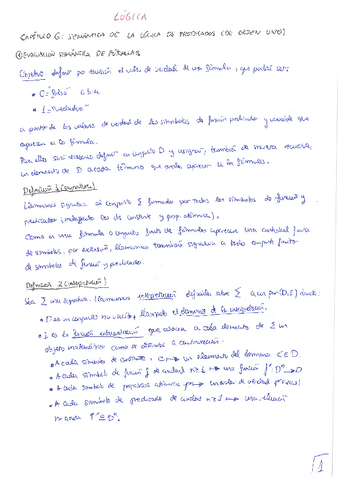 LÓGICA
CAPÍTULO 6: SEMÁNTICA DE LA LÓGICA DE PREDICADOS (DE ORDEN UNO)
① EVALUACIÓN SEMÁNTICA DE FÓRMULAS
Objetivo: definir por recursión el valor de verdad de una fórmula, que podrá ser:
• 0 = "falso" o bien
• 1 = "verdadero"
a partir de los valores de verdad de los símbolos de función predicado y variable que
aparecen en la fórmula.
Para ello será necesario definir un conjunto D y asignar, también de manera recursiva,
un elemento de D a cada término que pueda aparecer en la fórmula.
Definición 1 (signatura)
Llamamos signatura al conjunto Σ formado por todos los símbolos de función y
predicados (incluyendo los de constante y prop. atómicas).
Como en una fórmula o conjunto finito de fórmulas aparecen una cantidad finita
de símbolos, por extensión, llamaremos también signatura a todo conjunto finito
de símbolos de función y predicado.
Definición 2 (interpretación)
Sea Σ una signatura. Llamamos interpretación definida sobre Σ a un par (D,I) donde:
• D es un conjunto no vacío, llamado el dominio de la interpretación.
• I es la función interpretación que asocia a cada elemento de Σ un
objeto matemático como se detalla a continuación:
• A cada símbolo de constante c ↦ un elemento del dominio c ∈ D.
• A cada símbolo de función f de aridad n≥1 ↦ una función f: Dⁿ → D
• A cada símbolo de proposición atómica p ↦ un valor de verdad
• A cada símbolo de predicado de aridad n≥1 ↦ una relación
n-aria ⊆ Dⁿ.
1